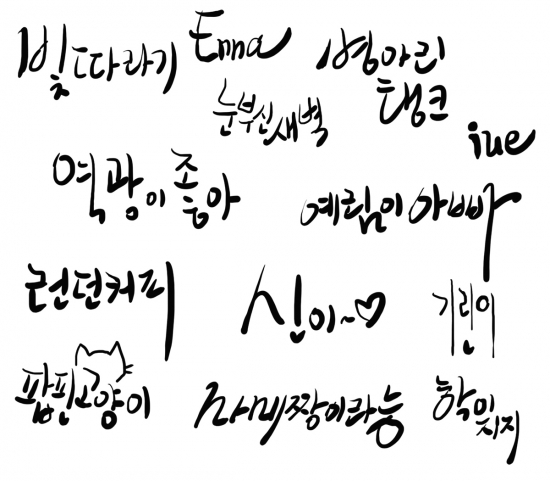 빛따라기 Enna
병아리
탱크
눈부신새벽
iue
역광이좋아
예림이아빠
런던커피
신이~♡
기린이
팝핀고양이
자비짱이라능
학잊지지